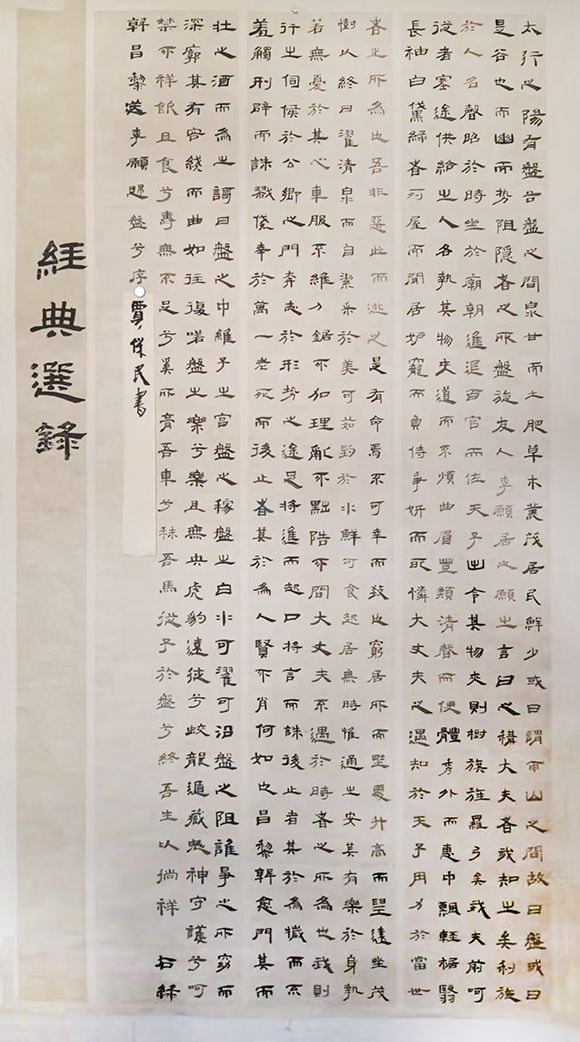 太行之陽有盤谷盤之間泉甘而土肥草木叢茂居民鮮少或曰謂而山之間故曰盤或曰
是谷也而幽而势阻隱者之所盤旋友人李願居之願之言曰之稱大夫者我知之矣利旋
於人名聲昭於時坐於廟朝進退百官而佐天子出令其物夾則樹旗旄羅弓矢武夫前呵
從者塞途供給之人各執其物夾道而不煩曲眉豐頰清聲而便體秀外而惠中飄輕裾翳
長袖白黛綠者列屋而閒居妒寵而負侍爭妍而取憐大丈夫之遇知於天子用力於當世
者之所為也吾非惡此而逃之是有命焉不可幸而致也窮居所而墅處升高而望遠坐茂
樹以終日濯清泉而自潔采於美可茹釣於水鮮可食起居無時惟適之安其有樂於身孰
若無憂於其心車服不維刀鋸不加理亂不黜陟不聞大丈夫不遇於時者之所為也我則
行之伺候於公卿之門奔走於形勢之途足將進而起口將言而誅後止者其於為穢而不
羞觸刑辟而誅戮僥幸於萬一老死而後止者其於為人賢不肖何如也昌黎韓愈門其而
壯之酒而為之謌曰盤之中維子之宮盤之稼盤之白水可濯可沿盤之阻誰爭之所窈而
深廓其有容繚而曲如往復嗟盤之樂兮樂且無央虎豹遠徙兮蛟龍遁藏鬼神守護兮呵
禁不祥飲且食兮壽無不足兮奚所膏吾車兮秣吾馬從子於盤兮終吾生以徜祥 右錄
韓昌黎送李願歸盤兮序 賈保民書
經典選錄